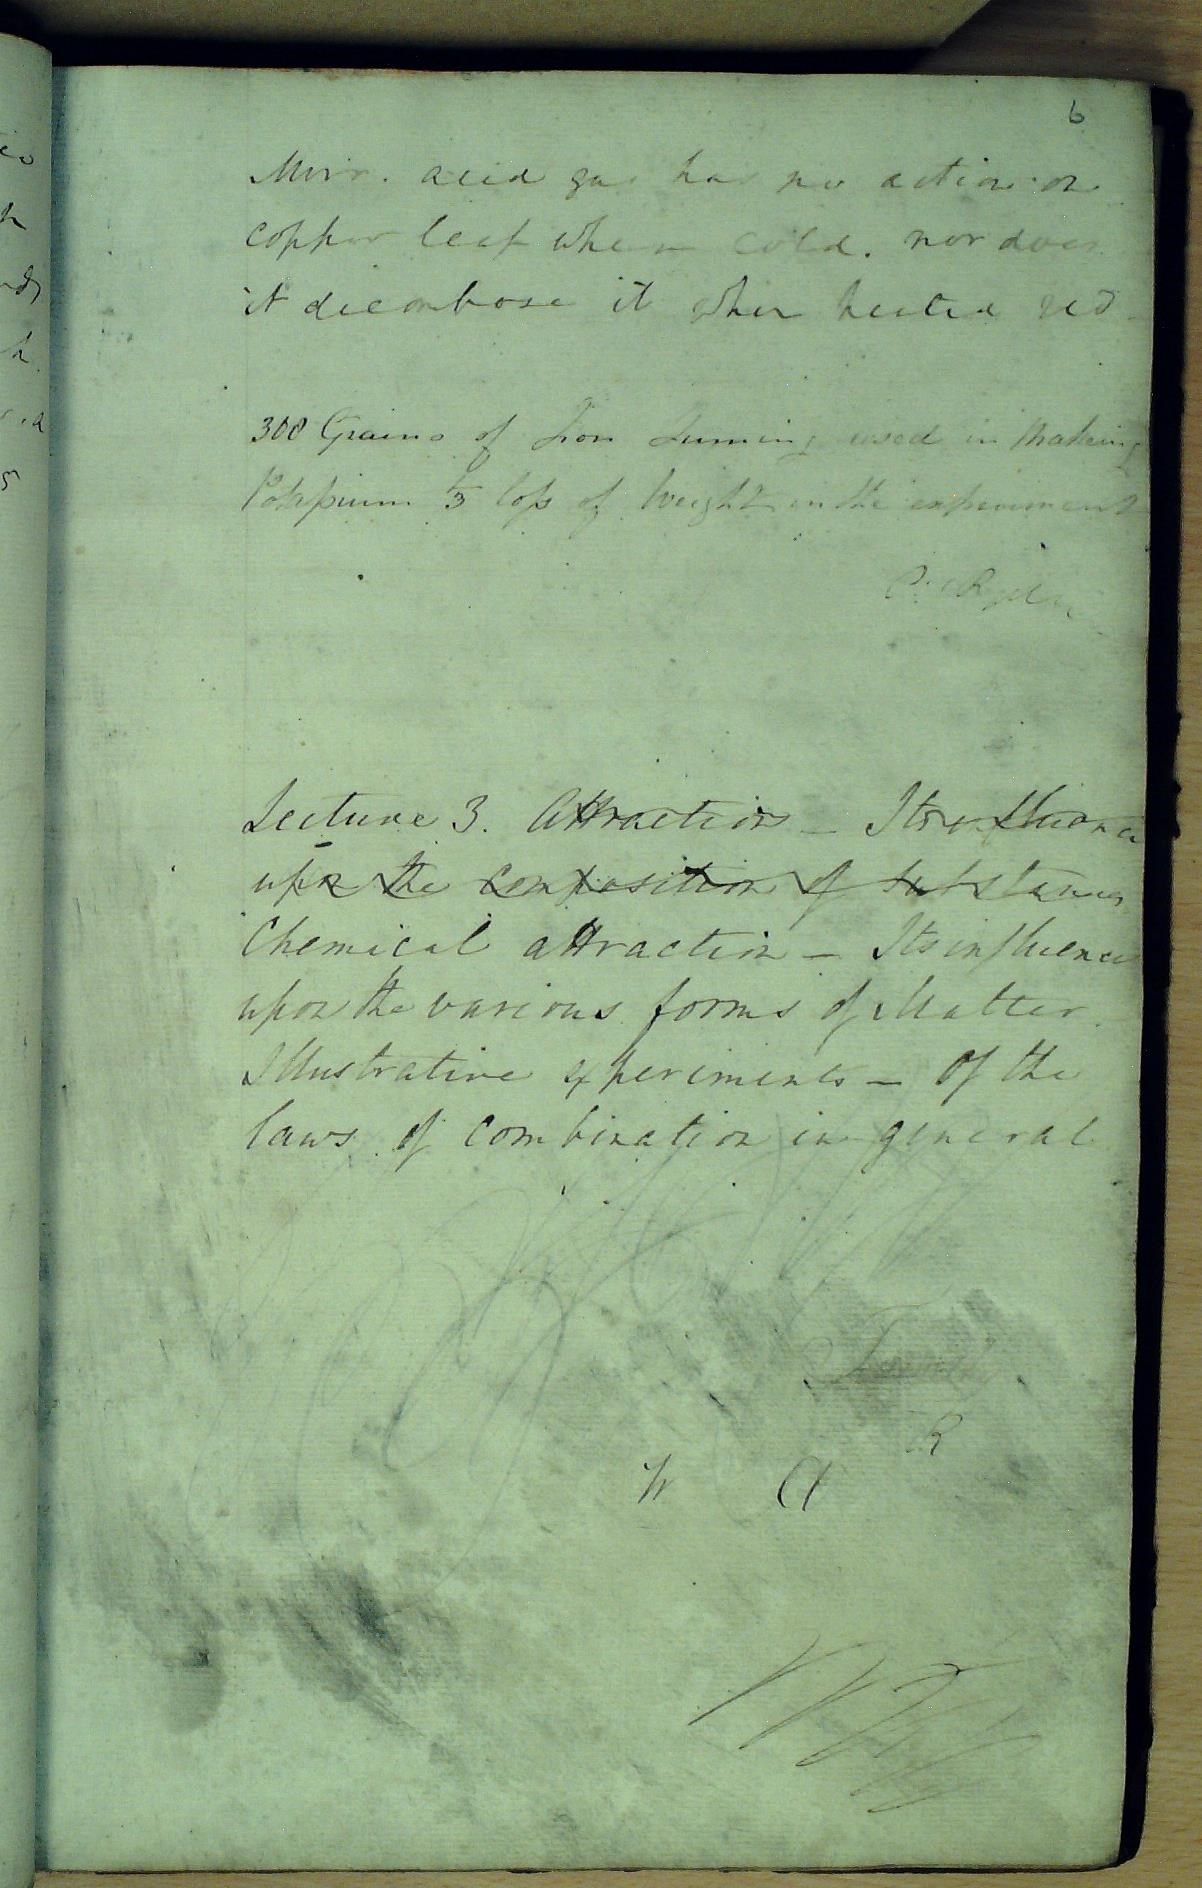 6
Mur. acid gas has no action on
copper leaf when cold. nor does
it decombose it when heated red
300 Grains of Iron Turning used in Making
Potassium 1/3 loss of Weight in the experiment
Lecture 3. Attraction — Its influence
upon the composition of substances
Chemical attraction — Its influence
upon the various forms of Matter.
Illustrative experiments — Of the
laws of combination in general
R